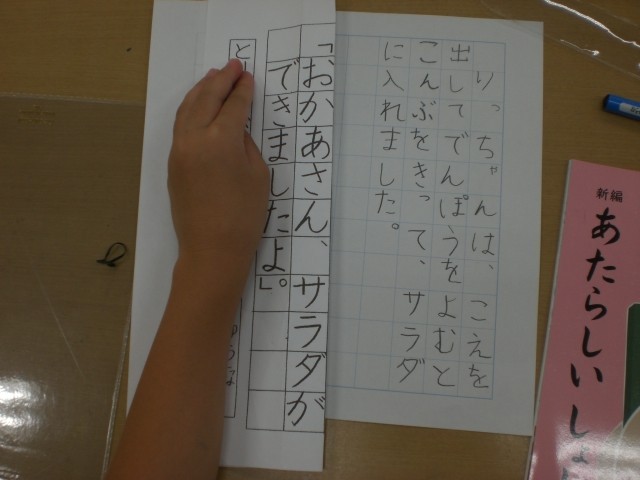 りっちゃんは、こえを
出してでんぽうをよむと
こんぶをきって、サラダ
に入れました。
「おかあさん、サラダが
できましたよ」。
新編
あたらしい